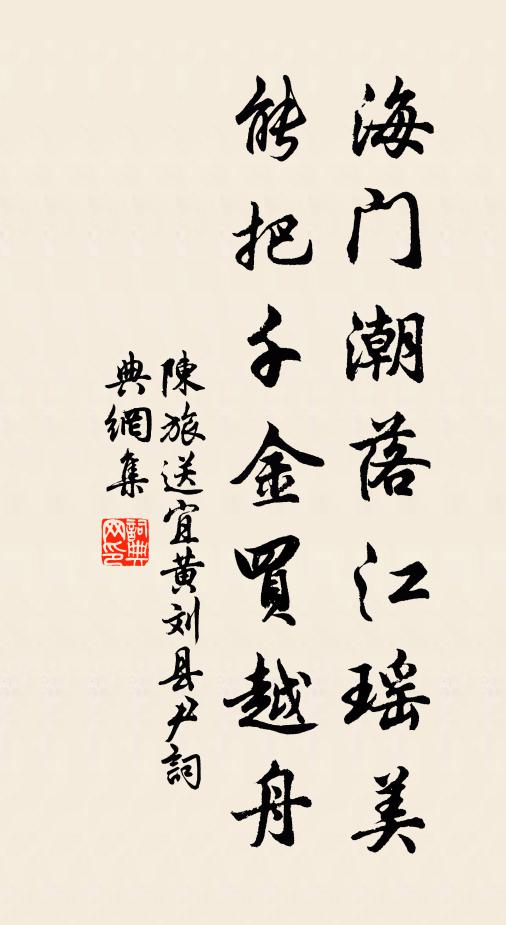 海门潮落江瑶美
能把千金買越舟
陳旅送宜黄刘县尹詞
典網集
詞典
网印